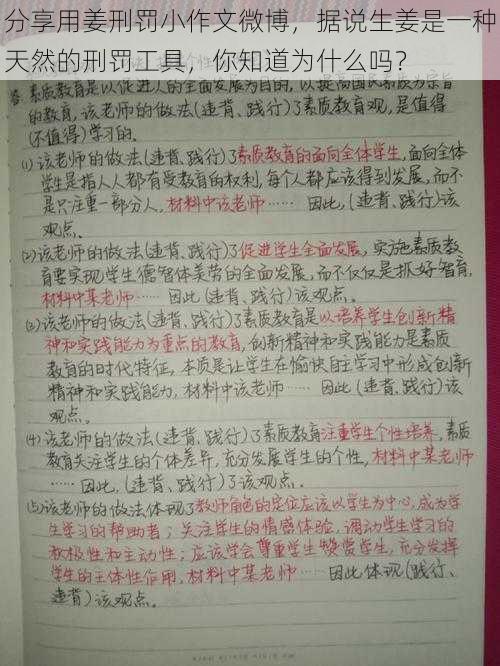 分享用姜刑罚小作文微博，据说生姜是一种
天然的刑罚工具，你知道为什么吗？
素质教育是以促进人的全面发展为目的，以提高国民素质为宗旨
的教育，该老师的做法(违背、践行)了素质教育观，是值得
(不值得)学习的。
(1)该老师的做法(违背、践行)了素质教育的面向全体学生，面向全体
学生是指人人都有受教育的权利，每个人都应该得到发展，而不
是只注重一部分人，材料中该老师…… 因此，(违背、践行)该
观点。
(2)该老师的做法(违背、践行)了促进学生全面发展，实施素质教
育要实现学生德智体美劳的全面发展，而不仅仅是抓好智育，
材料中某老师…… 因此(违背、践行)该观点。
(3)该老师的做法(违背、践行)了素质教育是以培养学生创新精
神和实践能力为重点的教育，创新精神和实践能力是素质
教育的时代特征，本质是让学生在愉快自主学习中形成创新
精神和实践能力，材料中该老师…… 因此(违背、践行)该
观点。
(4)该老师的做法(违背、践行)了素质教育注重学生个性培养，素质
教育关注学生的个体差异，充分发展学生的个性，材料中某老师
…… 因此，(违背、践行)了该观点。
(5)该老师的做法体现了教师角色的定位应该以学生为中心，成为学
生学习的帮助者；关注学生的情感体验，调动学生学习的
积极性和主动性；应该学会尊重学生赞赏学生，充分发挥
学生的主体性作用，材料中某老师……因此体现(践行、
违背)该观点。